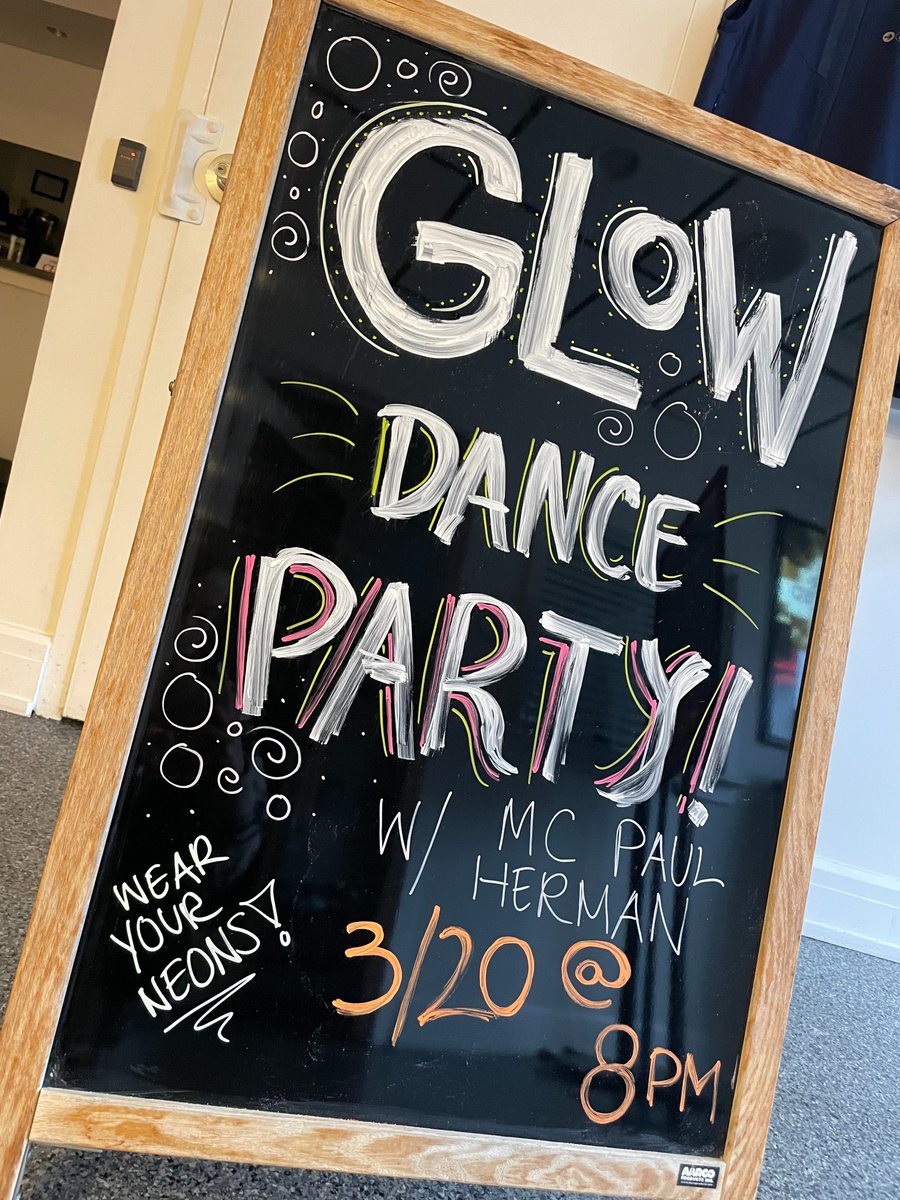 GLOW
DANCE
PARTY!
W/ MC PAUL
HERMAN
WEAR
YOUR
NEONS!
3/20 @
8PM
AARCO
PRODUCTS INC.